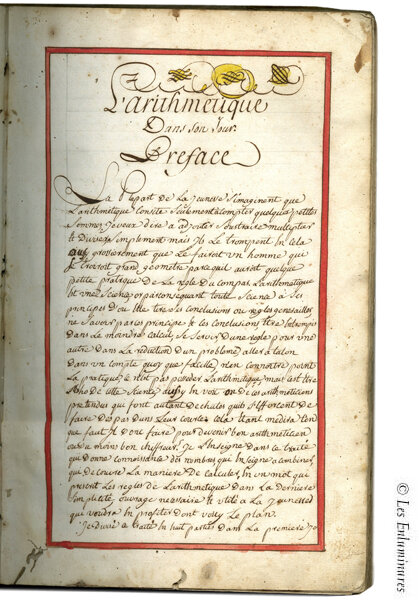 L'arithmetique
Dans son Jour.
Preface
La Plupart de La Jeunesse S'imaginent que
L'arithmetique Consiste Seulement a Compter quelques petites
Sommes Je veux dire a adjouter Soustraire multiplier
& Diviser Simplement mais Ils Se trompent En Cela
aussy grossierement que Le Feroit un homme qui
Se Croiroit grand geometre parcequil auroit quelque
petite pratique de La regle du Compas L'arithmetique
Est une Science or par consequant toute Science a Ses
principes D'ou Elle tire Ses Conclusions ou regles generalles
ne Scavoir pas les principes & les Conclusions Estre Interrompu
Dans Le moindre Calcul, Se Servir D'une regle pour une
autre Dans La reduction D'un probleme, aller a taton
Dans un Compte quoy que facille, n'en Connoitre point
La pratique, Ce n'est pas posseder L'arithmetique, mais C'est Estre
de Cette Science, aussy En voit on de Ces arithmeticiens
pretendus qui font autant de chutes quils S'efforcent de
faire Des pas Dans Leur Course, Cela Etant
que faut Il Donc faire pour Devenir bon arithmeticien
ou du moins bon Chiffreur, Je L'Enseigne Dans Ce traité
qui Donne Connoissance Des nombres que Enseigne a Combiner,
que decouvre La maniere De Calculer, En un mot qui
present Les regles de L'arithmetique Dans La Derniere
Simplicité, ouvrage necessaire & utile a La Jeunesse
qui voudra En profiter Dont voicy Le plan.
Je Divise Ce traité En huit parties Dans La premiere Jo
© Les Enluminures